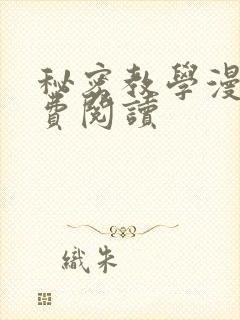 秘密教學漫
費閱讀
織朱